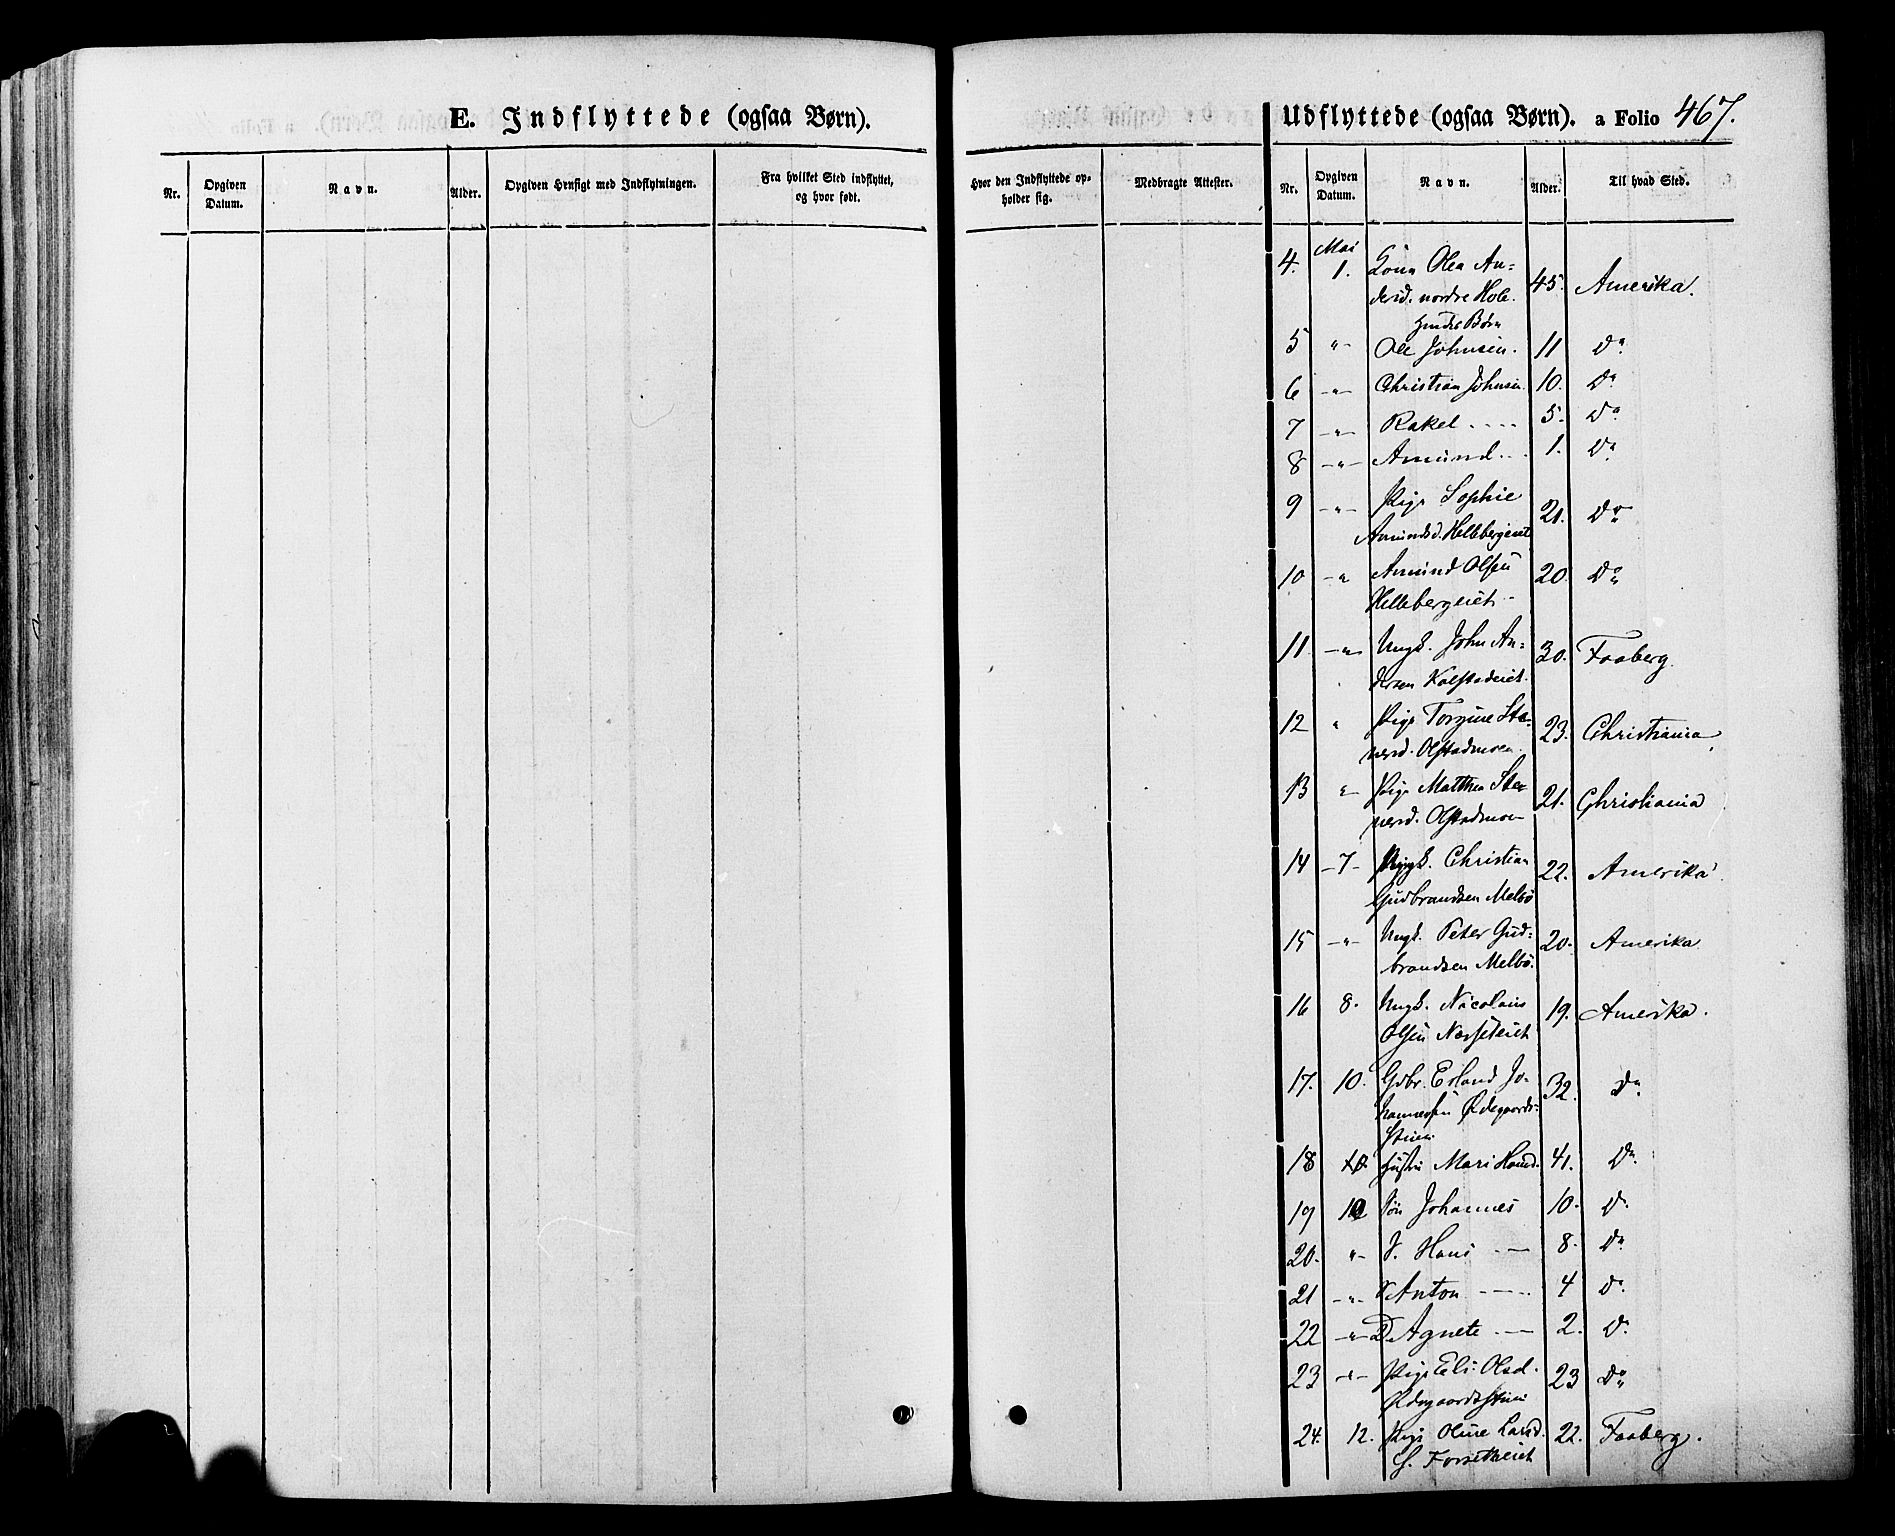 E. Indflyttede (ogsaa Børn).
Nr.
Opgiven
Datum.
Navn.
Alder.
Opgiven Hensigt med Indflytningen.
Fra hvilket Sted indflyttet,
og hvor født.
Hvor den Indflyttede op-
holder sig.
Medbragte Attester.
Udflyttede (ogsaa Børn). a Folio 467.
Nr.
Opgiven
Datum.
Navn.
Alder.
Til hvad Sted.
Mai
4. 1. Kona Olea An=
dersd. nordre Hole. 45. Amerika.
hendes Børn
5 " Ole Johnsen. 11 Do
6 " Christian Johnsen 10. Do
7 " Rakel .... 5. Do
8 " Amund... 1. Do
9 " Pige Sophie
Amundsd. Hellebergeiet 21. Do
10 " Amund Olsen 20. Do
Hellebergeiet
11 " Ungk. John An= 30. Faaberg.
dersen Kolstadeiet.
12 " Pige Torgine Ste=
nersd. Olstadmoen. 23. Christiania
13 " Pige Matthea Ste=
nersd. Olstadmoen 21. Christiania
14 -7- Ungk. Christian 22. Amerika
Gudbrandsen Melbö
15 " Ungk. Peter Gud= 20. Amerika
brandsen Melbö.
16 8. Ungk. Nicolaus 19. Amerika.
Olsen
17. 10. Gbr. Erland Jo= 32. Do
hannessen Ødegaards=
stuen
18 10 Hustru Mari Hansd. 41. Do
19 10 Søn Johannes 10. Do
20. " S. Hans 8. Do
21 " S Anton 4 Do
22 " D Agnete 2. Do
23 " Pige Eli Olsd. 23 Do
Ødegaardsstuen
24. 12. Pige Oline Larsd. 22. Faaberg.
S. Forsetheiet